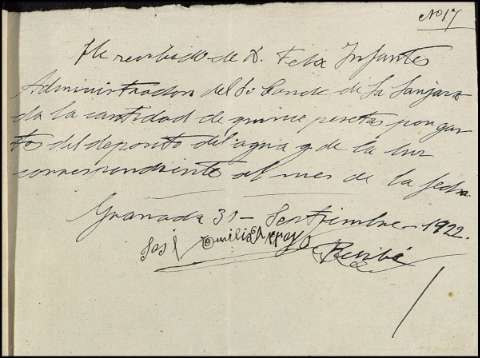 Nº 17
He recibido de D. Felix Infantes
Administrador del Sr Conde de la Jarosa
da la cantidad de quince pesetas por gas
tos del deposito del agua y de la luz
correspondiente al mes de la fecha
Granada 31 - Septiembre - 1922.
José Emilio
Recibí